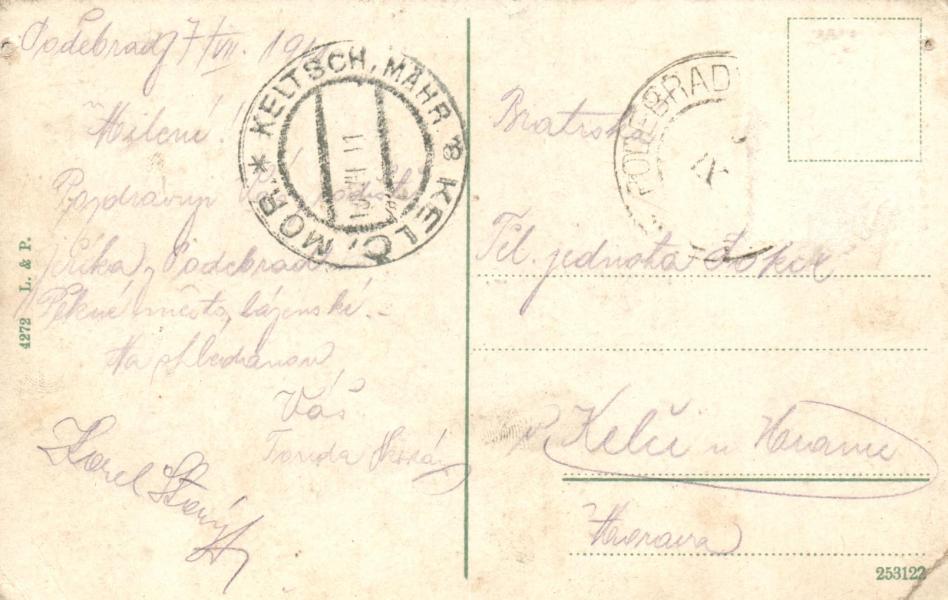 Poděbrady 7/VII. 191
Milení!
Pozdravuji
Jiříka, Poděbrad
Pěkné město, lázeňské.
Na shledanou
Váš
Tonda
Karel Starý
4272 L. & P.
* KELTSCH, MÄHR. 8 KELČ, MOR.
PODĚBRAD
Bratrská
Těl. jednota Sokol
v Kelči u Hranic
Morava
253122